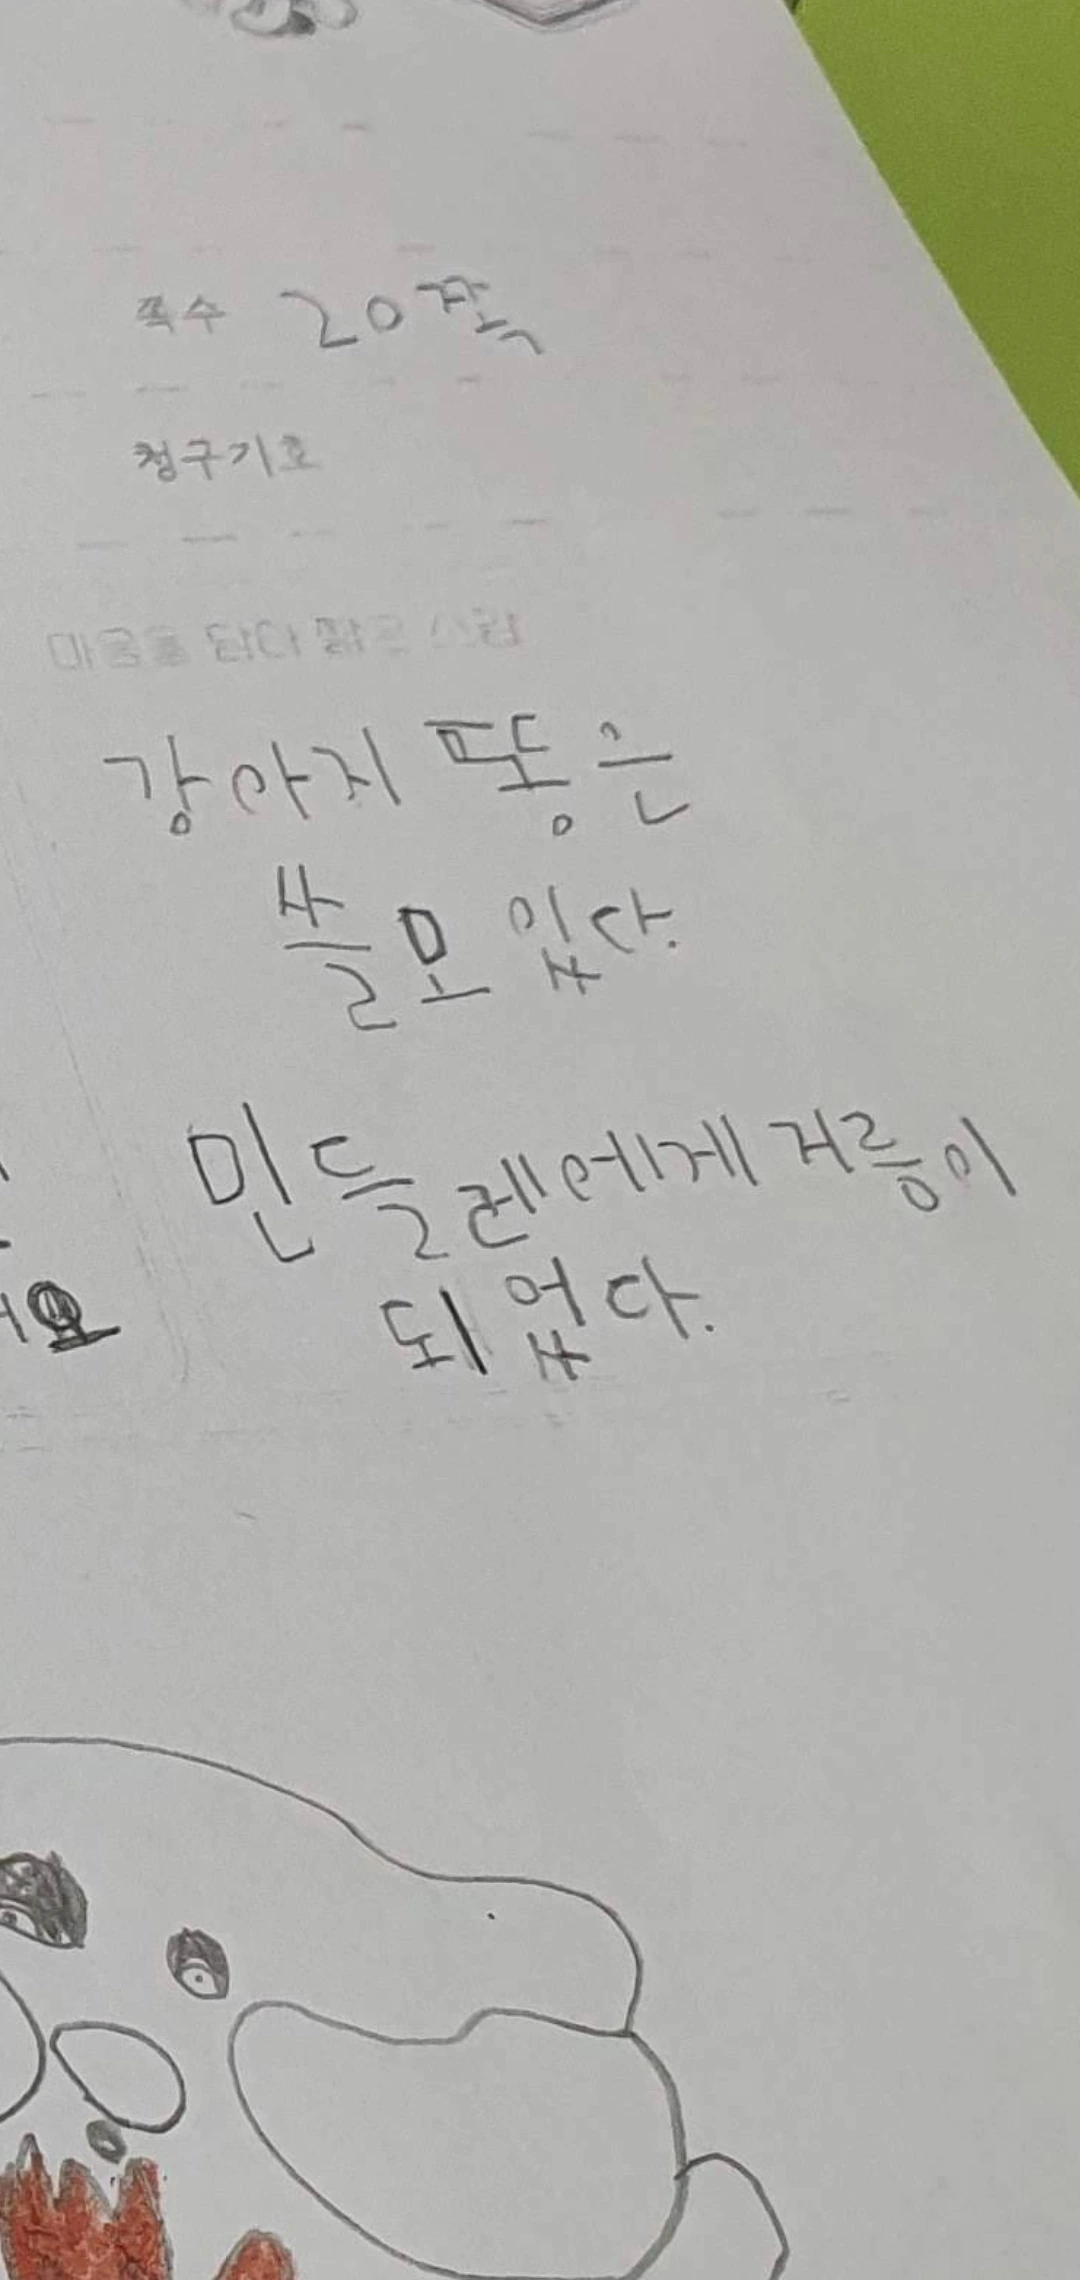 쪽수 20쪽
청구기호
마음을 담다 짧은 서평
강아지 똥은
쓸모 있다.
민들레에게 거름이
되었다.
요